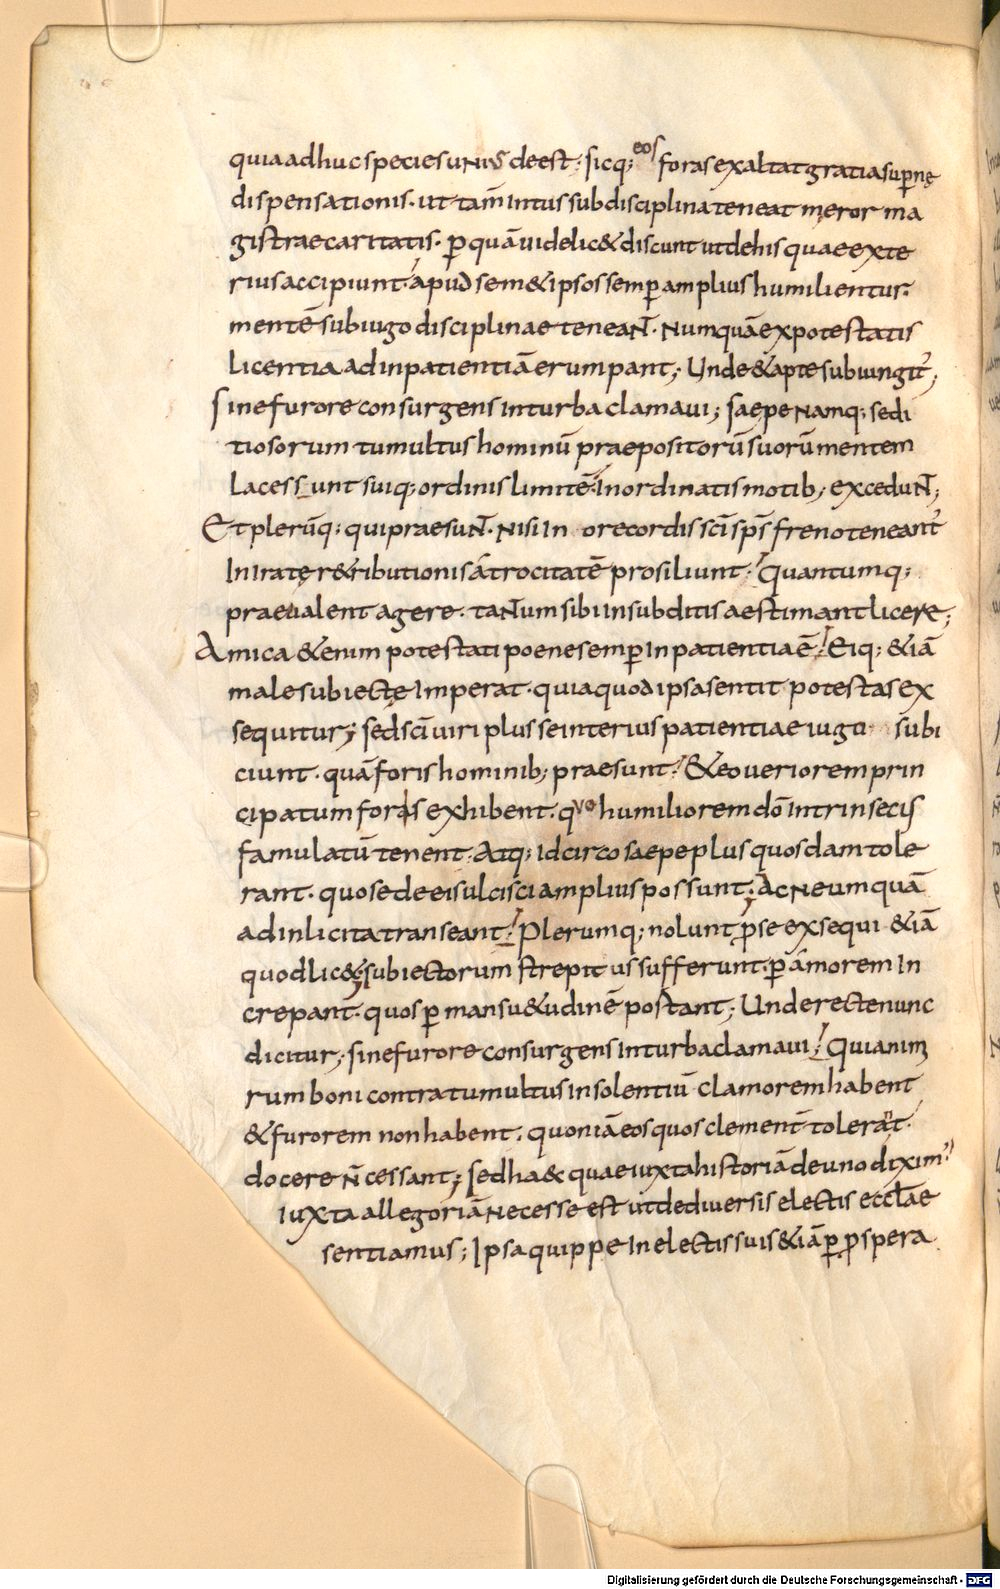 quia adhuc species uNius deest; sicq; eos foras exaltat gratia supernę
dispensationis· ut tam̄ intus sub disciplina teneat męror ma
gistrae caritatis· ꝑ quā uidelic& discunt ut de his quae exte
rius accipiunt· apud sem&ipsos semꝑ amplius humilientur·
mentē sub iugo disciplinae teneaN̄t· Numquā ex potestatis
licentia ad inpatientiā erumpant; Unde & apte subiungit᾿;
Sine furore consurgens in turba clamaui; saepe Namq; sedi
tiosorum tumultus hominū praepositorū suorū mentem
lacessunt suiq; ordinis limitē· inordinatis motib; exceduN̄t;
Et plerūq; qui praesuN̄t· Nisi in ore cordis sc̄i sp̄s freno teneant᾿
In iratę r&ributionis atrocitatē prosiliunt· Quantumq;
praeualent agere· taNtum sibi in subditis aestimant licere;
Amica &enim potestati poene semꝑ inpatientia ē· Eiq; &iā
male subiectę imperat· quia quod ipsa sentit potestas ex
sequitur; sed sc̄i uiri plus se interius patientiae iugū subi
ciunt· quā foris hominib; praesunt· & eo ueriorem prin
cipatum foris exhibent· quo humiliorem dō intrinsecis
famulatū tenent· Atq; idcirco saepe plus quosdam tole
rant· quo se de eis ulcisci amplius possunt; Ac Ne umquā
ad inlicita transeant· Plerumq; nolunt p̄ se exsequi &iā
quod lic&; subiectorum strepitus sufferunt· ꝑ amorem in
crepant· quos ꝑ mansu&udinē portant; Unde recte nunc
dicitur; sine furore consurgens in turba clamaui; Quia nim
rum boni contra tumultus insolentiū clamorem habent
& furorem non habent· quoniā eos quos clement̄ tolerat·
docere n̄ cessant; sed ha& quae iuxta historiā de uno diximꝰ
Iuxta allegoriā Necesse est ut de diuersis electis eccl̄ae
sentiamus; Ipsa quippe in electis suis &iā ꝑ prospera
Digitalisierung gefördert durch die Deutsche Forschungsgemeinschaft - DFG